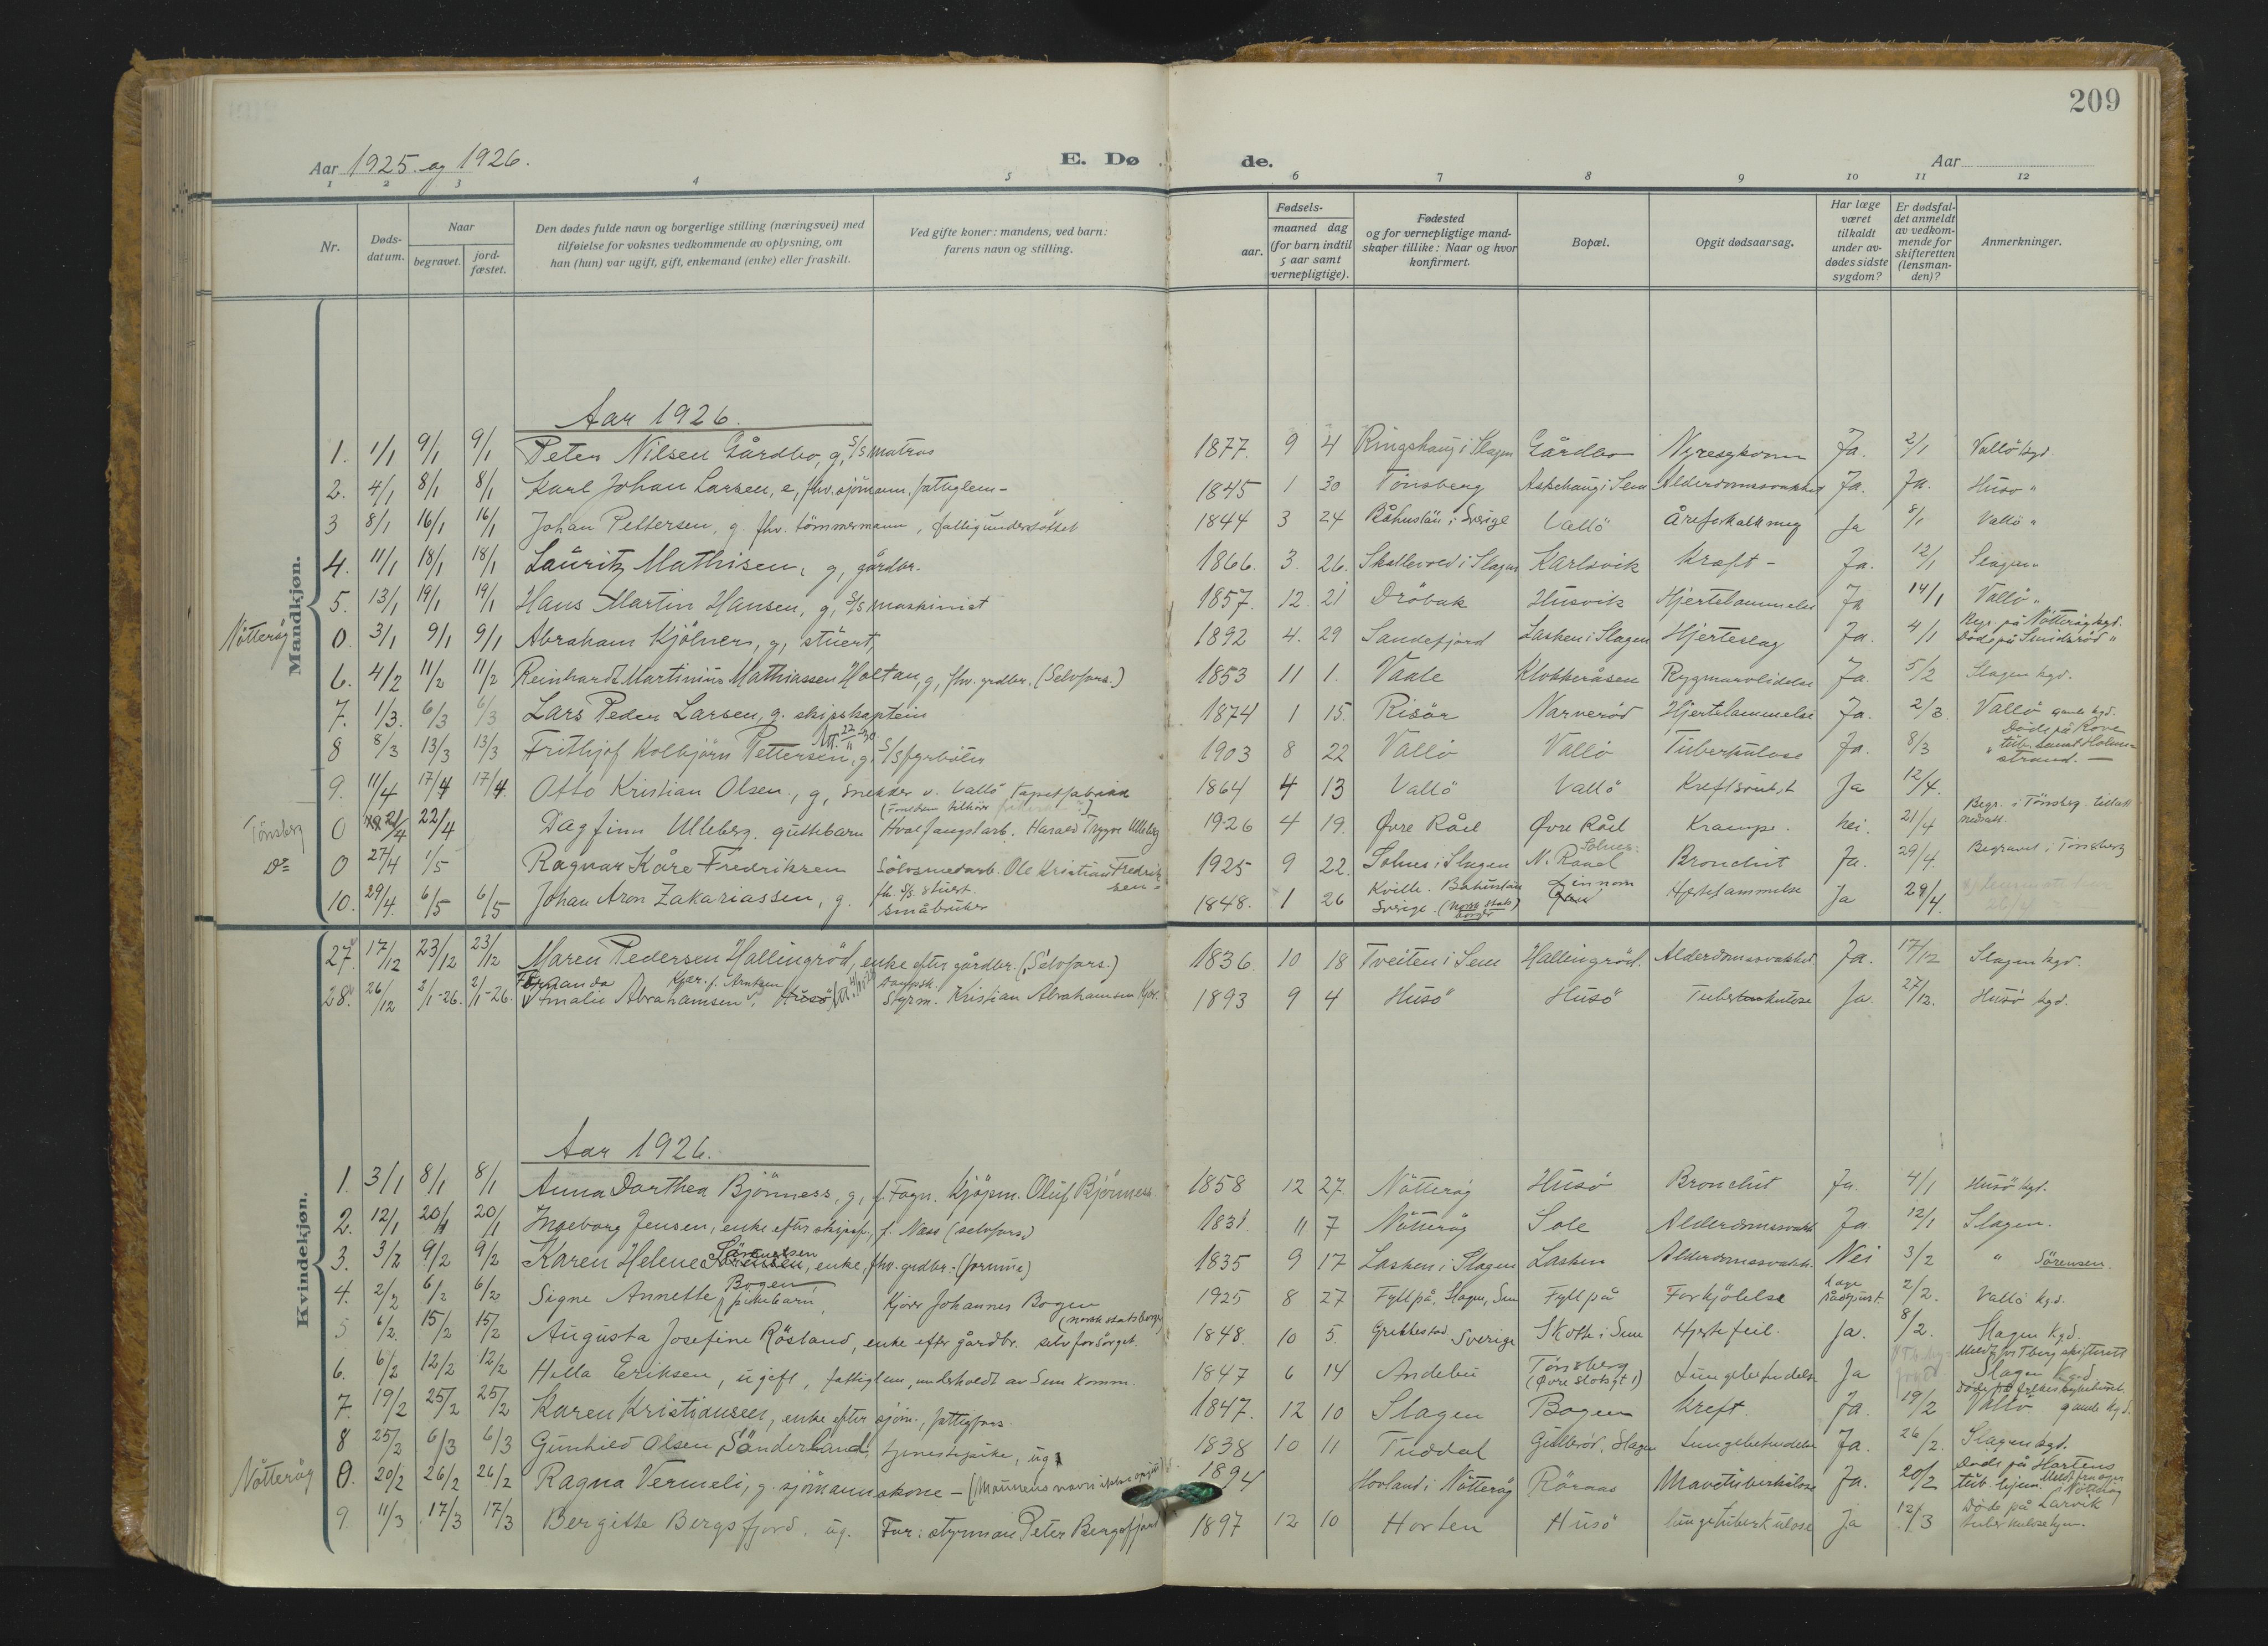 209
Aar 1925 og 1926.
E. Dø de.
Aar
1 2 3 4 5 6 7 8 9 10 11 12
Nr.
Døds-datum.
Naar
begravet.
jord-fæstet.
Den dødes fulde navn og borgerlige stilling (næringsvei) med
tilføielse for voksnes vedkommende av oplysning, om
han (hun) var ugift, gift, enkemand (enke) eller fraskilt.
Ved gifte koner: mandens, ved barn:
farens navn og stilling.
Fødsels-
aar.
maaned dag
(for barn indtil
5 aar samt
vernepligtige).
Fødested
og for vernepligtige mand-
skaper tillike: Naar og hvor
konfirmert.
Bopæl.
Opgit dødsaarsag.
Har læge
været
tilkaldt
under av-
dødes sidste
sygdom?
Er dødsfal-
det anmeldt
av vedkom-
mende for
skifteretten
(lensman-
den)?
Anmerkninger.
Mandkjøn.
Aar 1926.
1. 1/1 9/1 9/1 Peter Nilsen Gårdbo, g, s/s matros 1877. 9 4 Ringshaug i Slagen Gårdbo Nyresykdom Ja. 2/1 Vallö kgd.
2. 4/1 8/1 8/1 Karl Johan Larsen, e, fhv. sjömann, fattiglem - 1845 1 30 Tönsberg Askehaug i Sem Alderdomssvakhet Ja. Ja. Husö "
3 8/1 16/1 16/1 Johan Pettersen, g. fhv. tömmermann, fattigunderstöttet 1844 3 24 Båhuslän i Sverige Vallö Åreforkalkning Ja 8/1 Vallö "
4. 11/1 18/1 18/1 Lauritz Mathisen, g, gårdbr. 1866. 3. 26. Skallevold i Slagen Karlsvik Kræft - Ja. 12/1 Slagen "
5. 13/1 19/1 19/1 Hans Martin Hansen, g, s/s maskinist 1857. 12. 21 Dröbak Husvik Hjertelammelse Ja 14/1 Vallö "
Nötteröy 0. 3/1 9/1 9/1 Abraham Kjölner, g, stuert, 1892 4. 29 Sandefjord Lasken i Slagen Hjerteslag Ja. 4/1 Begr. på Nötteröy kgd.
Döde på Smidsröd "
6. 4/2 11/2 11/2 Reinhardt Martinius Mathiassen Holtan, g, fhv. grdbr. (Selvfors.) 1853 11 1. Vaale Klokkeråsen Rygmarvlidelse Ja. 5/2 Slagen kgd.
7. 1/3. 6/3 6/3 Lars Peder Larsen, g. skipskaptein 1874 1 15. Risör Narveröd Hjertelammelse Ja. 2/3 Vallö gamle kgd.
8 8/3 13/3 13/3 Frithjof Kolbjörn Pettersen, g, s/s fyrböter 1903 8 22 Vallö Vallö Tuberkulose Ja. 8/3 Döde på Rove
strand. -
9. 11/4 17/4 17/4. Otto Kristian Olsen, g, snekker v. Vallö Tapetfabrikk 1864 4 13 Vallö Vallö Kreftsvulst Ja 12/4.
Tönsberg 0 22/4 Dagfinn Ulleberg. guttebarn Hvalfangstarb. Harald Trygve Ulleberg 1926 4 19. Övre Råel Övre Råel Krampe. Nei. 21/4 Begr. i Tönsberg.
Do 0 27/4 1/5 Ragnar Kåre Fredriksen Sölvsmedarb. Ole Kristian Fredriksen 1925 9 22. Solnes i Slagen N. Raael Bronchit Ja. 29/4. Begravet i Tönsberg
10. 29/4. 6/5 6/5 Johan Aron Zakariassen, g. fh. s/s stuert. småbruker 1848. 1 26 Kville. Bahuslän
Sverige. (Norsk stats borger) Hjertelammelse Ja 29/4.
Kvindekjøn.
27. 17/12 23/12 23/12 Maren Pedersen Hallingröd, enke efter gårdbr. (Selvfors.) 1836. 10 18 Tveiten i Sem Hallingröd. Alderdomssvakhet Ja. 17/12 Slagen kgd.
28. 26/12 2/1-26. 2/1-26. Amalie Abrahamsen, Husö Styrm. Kristian Abrahamsen 1893 9 4 Husö Husö Tuberkulose Ja. 27/12. Husö kgd.
Aar 1926.
1. 3/1 8/1 8/1 Anna Dorthea Bjönness, g, f. Fogn. Kjöpm. Oluf Bjönness 1858 12 27. Nötteröy Husö Bronchit Ja. 4/1 Husö kgd.
2. 12/1 20/1 20/1 Ingeborg Jensen, enke efter skipsf., f. Næss (selvfors.) 1831. 11 7 Nötteröy Sole Alderdomssvakh. Ja 12/1 Slagen.
3. 3/2 9/2 9/2 Karen Helene Sörensen, enke, fhv. grdbr. (formue) 1835 9 17 Lasken i Slagen Lasken Alderdomssvakh. Nei 3/2 " Sörensen.
4. 2/2 6/2 6/2 Signe Annette Bogen pikebarn, Kjörer Johannes Bogen 1925 8 27 Fyllpå, Slagen, Sem Fyllpå Forkjölelse Læge rådspurt. 2/2. Vallö kgd.
(norsk statsborger)
5 6/2. 15/2 15/2 Augusta Josefine Rösland, enke efter gårdbr. selvforsörget. 1848. 10 5. Grebbestad Sverige Skotte i Sem Hjertefeil. Ja. 8/2. Slagen Kgd.
6. 6/2 12/2 12/2 Hella Eriksen, ugift, fattiglem, underholdt av Sem Komm. 1847 6 14 Andebu Tönsberg
(Övre Slotsgt 1) Lungebetændelse Ja Slagen Kgd.
7. 19/2 25/2 25/2 Karen Kristiansen, enke efter sjöm., fattigfors. 1847. 12 10 Slagen Bogen Kreft. Ja. 19/2 Vallö gamle kgd.
8 25/2 6/3 6/3 Gunhild Olsen Sönderland, tjenestepike, ug. 1838 10 11 Tuddal Gulleröd, Slagen Lungebetændelse Ja. 26/2. Slagen kgd.
Nötteröy 0. 20/2 26/2 26/2 Ragna Vermeli, g. sjömannskone - (Mannens navn ikke opgit) 1894 Hovland i Nötteröy Röraas Mavetuberkulose Ja. 20/2 Döde på Hortens
tub. hjem.
9. 11/3 17/3 17/3 Bergitte Bergsfjord, ug. Far: styrman Peter Bergsfjord 1897 12 10 Horten Husö Lungetuberkulose Ja 12/3 Döde på Larvik
tuberkulosehjem.